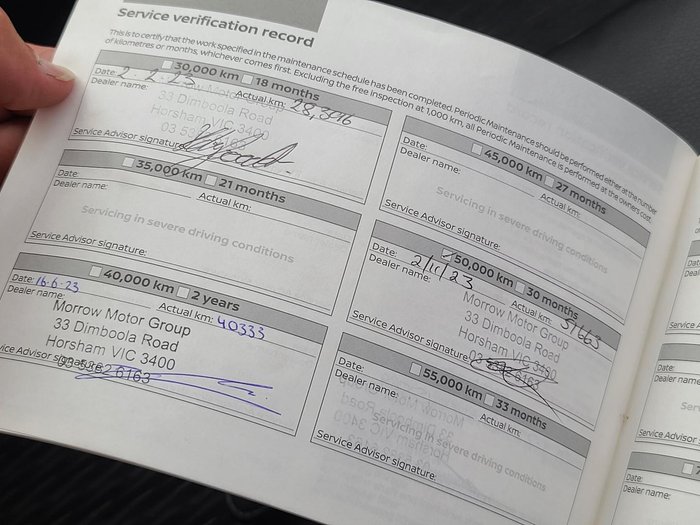 Service verification record
This is to certify that the work specified in the maintenance schedule has been completed. Periodic Maintenance should be performed either at the number
of kilometres or months, whichever comes first. Excluding the free inspection at 1,000 km, all Periodic Maintenance is performed at the owners cost.
30,000 km 18 months
Date: 2.2.23 Actual km: 28,3016
Dealer name:
33 Dimboola Road
Horsham VIC 3400
Service Advisor signature:
35,000 km 21 months
Date: Actual km:
Dealer name:
Servicing in severe driving conditions
Service Advisor signature:
40,000 km 2 years
Date: 16.6.23 Actual km: 40333
Dealer name:
Morrow Motor Group
33 Dimboola Road
Horsham VIC 3400
03 5382 6163
45,000 km 27 months
Date: Actual km:
Dealer name:
Servicing in severe driving conditions
Service Advisor signature:
50,000 km 30 months
Date: 2/11/23 Actual km: 51663
Dealer name:
Morrow Motor Group
33 Dimboola Road
Horsham VIC 3400
Service Advisor signature:
55,000 km 33 months
Date: Actual km:
Dealer name:
Servicing in severe driving conditions
Service Advisor signature:
Date:
Dealer name:
Service Advisor
Date:
Dealer name:
Service Advi
Date:
Dealer name: